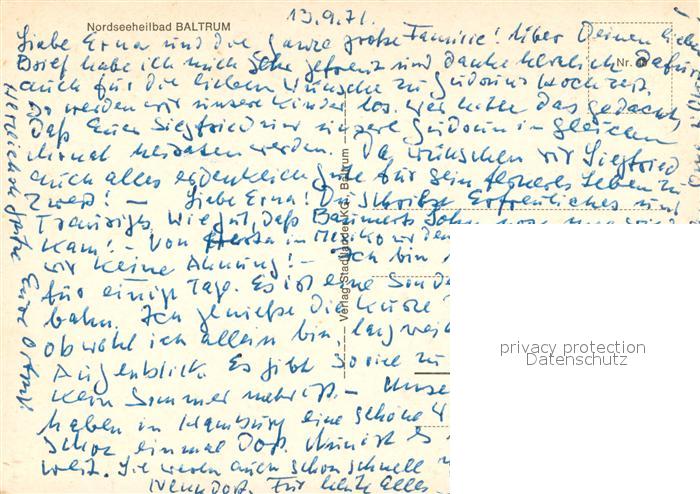 13.9.71.
Nordseeheilbad BALTRUM
Liebe Erna und die ganze große Familie! Über Deinen lieben
Brief habe ich mich sehr gefreut und danke herzlich dafür,
auch für die lieben Wünsche zu Gudruns Hochzeit.
Nr.
So werden wir unsere Kinder los. Wer hätte das gedacht,
daß Euer Siegfried und unsere Gudrun im gleichen
Monat heiraten werden. Da wünschen wir Siegfried
auch alles erdenklich Gute für sein ferneres Leben zu
zweit! – Liebe Erna! Du schreibst Erfreuliches und
Trauriges. Wie gut, daß Baumerts Sohn
kam! – Von Herta in Mexiko
wir keine Ahnung! – Ich bin
für einige Tage. Es ist eine
bahn. Ich genieße die kurze
obwohl ich allein bin, langweil
Augenblick. Es gibt so viel zu
kein Sommer mehr ist. – Unse
haben in Hamburg eine schöne
schon einmal dort. Nun ist es
weit. Sie werden auch schon schnell
Für heute alles
Herzlichst grüßt Eure
Verlag Stadtlander KG., Baltrum
privacy protection
Datenschutz